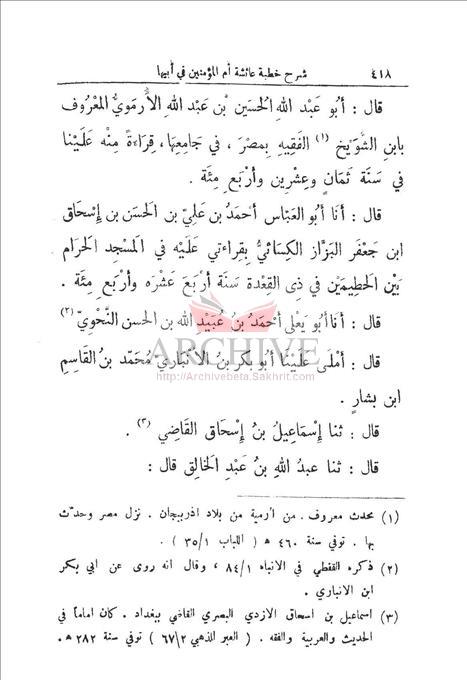 ٤١٨ شرح خطبة عائشة أم المؤمنين في أبيها
قال : أَبُو عَبْد اللهِ الحُسَين بْن عَبْد اللهِ الأَرمَوِيُّ المَعْرُوف
بابنِ الشُّوَيْخ (١) الفَقِيهِ بِمصْرَ ، في جَامِعِهَا ، قِرَاءَةً مِنْه عَلَيْنا
في سَنَة ثَمَانٍ وعِشْرِين وأَرْبَعِ مِئَة .
قَال : أَنَا أَبُو العَبَّاس أَحْمَدُ بن عَلِيِّ بن الحَسَن بن إِسْحَاق
ابن جَعْفَر البَزَّاز الكِسَائِيُّ بِقراءَتي عَلَيْه في المَسْجِد الحَرام
بَيْن الحَطِيمَيْن في ذِي القِعْدة سَنَة أَرْبَعَ عَشْرَه وأَرْبَعِ مِئَة .
قَال : أَنَا أَبو يَعْلى أَحْمَدُ بنُ عُبَيْدِ الله بن الحسن النَّحْوِيُّ (٢)
ARCHIVE
قَال : أَمْلَى عَلَيْنا أَبُو بَكر بنُ الأَنْبَارِيِّ مُحَمَّد بنُ القَاسِم
http://Archivebeta.Sakhrit.com
ابن بشارٍ .
قَال : ثنا إِسْمَاعِيلُ بنُ إِسْحَاق القَاضِي (٣) .
قَال : ثنا عبدُ اللهِ بنُ عَبْدِ الخَالِق قَال :
(١) محدث معروف . من أرمية من بلاد اذربيجان . نزل مصر وحدث
بها . توفي سنة ٤٦٠ هـ ( اللباب ٣٥/١ ) .
(٢) ذكره القفطي في الانباه ٨٤/١ ، وقال انه روى عن ابي بكر
ابن الانباري .
(٣) اسماعيل بن اسحاق الازدي البصري القاضي ببغداد . كان اماماً في
الحديث والعربية والفقه . ( العبر للذهبي ٦٧/٢ ) توفي سنة ٢٨٢ هـ .